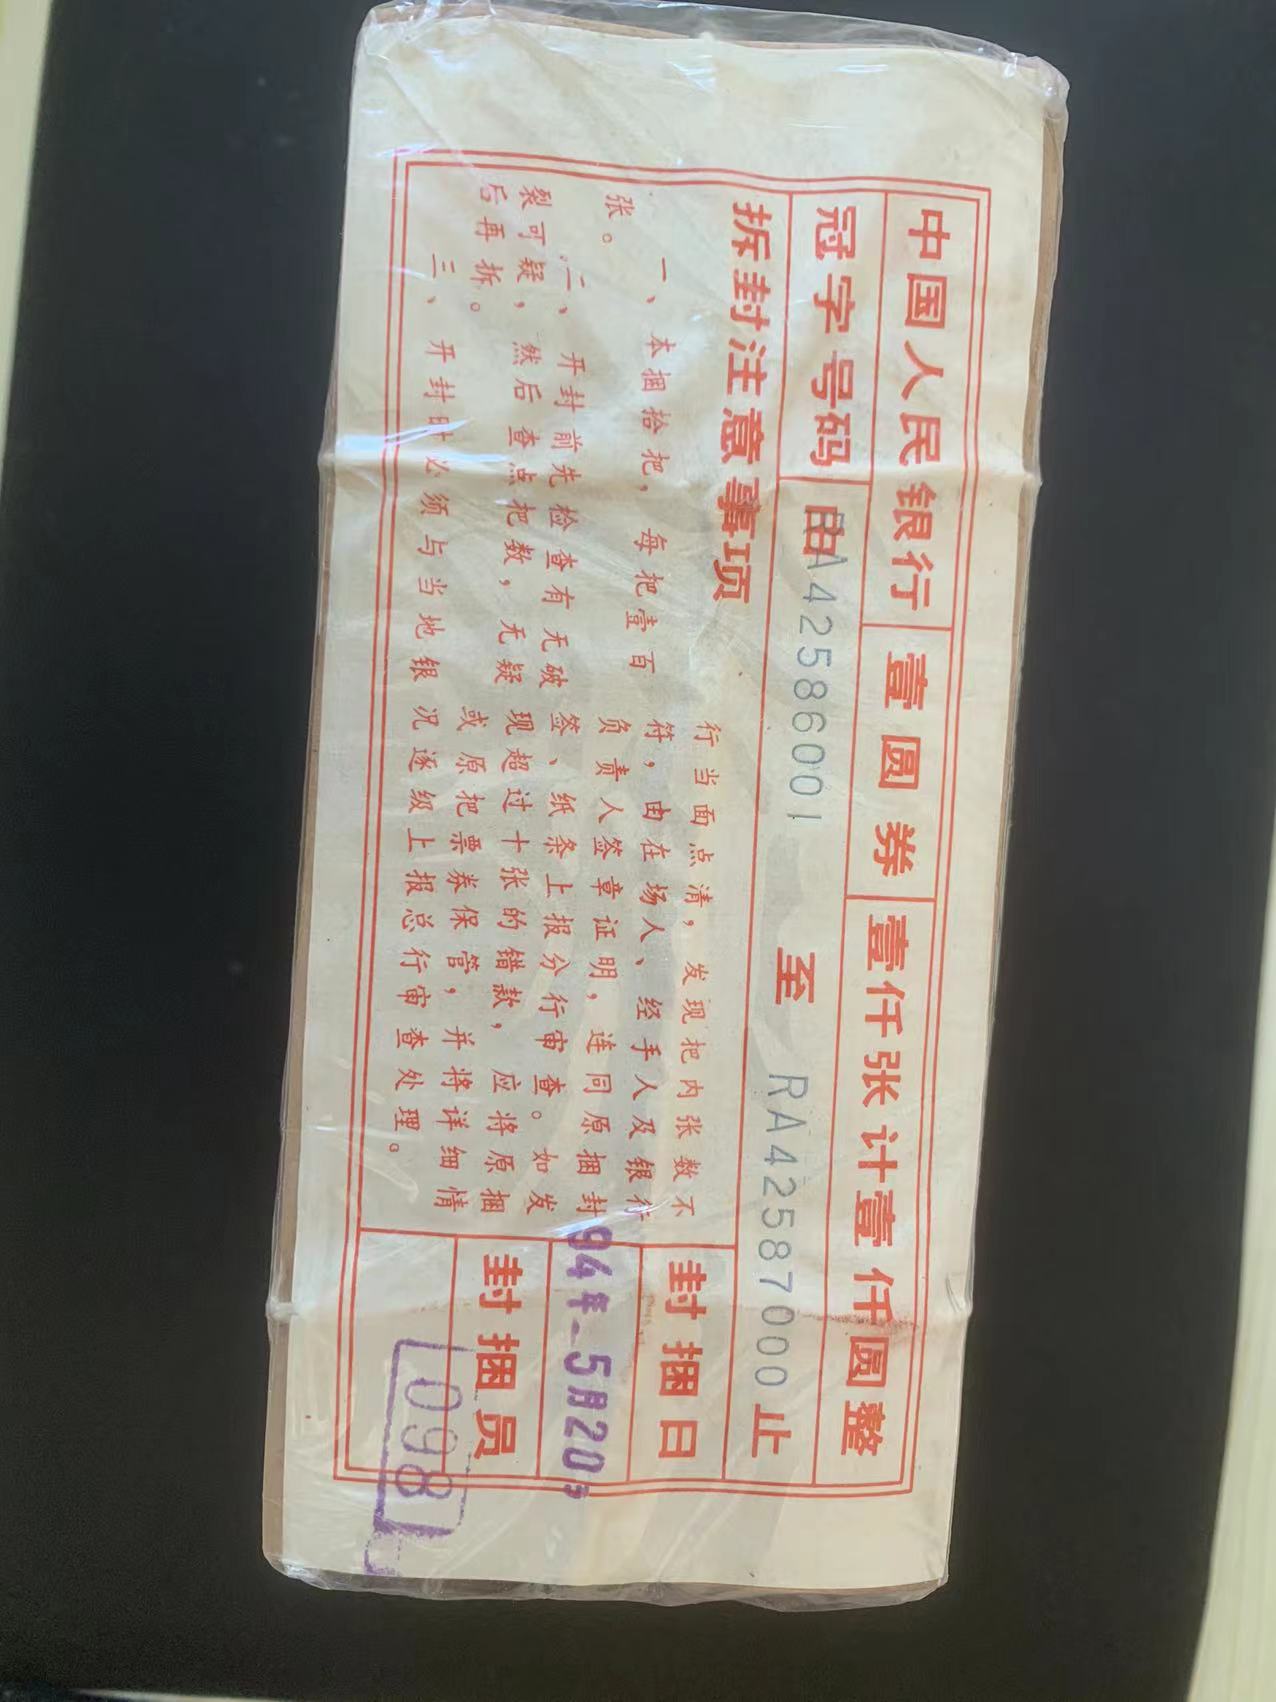 中国人民银行 壹圆券 壹仟张计壹仟圆整
冠字号码 由RA42586001 至 RA42587000止
拆封注意事项
一、本捆拾把，每把壹百
张。
二、开封前先检查有无破
裂可疑，然后查点把数，无疑
后再拆。
三、开封时必须与当地银
行当面点清，发现把内张数不
符，由在场人、经手人及银行
负责人签章证明，连同原捆封
签、纸条上报分行审查。如发
现超过十张的错款，应将原捆
或原把票券保管，并将详细情
况逐级上报总行审查处理。
封捆日
94年 5月20日
封捆员
098